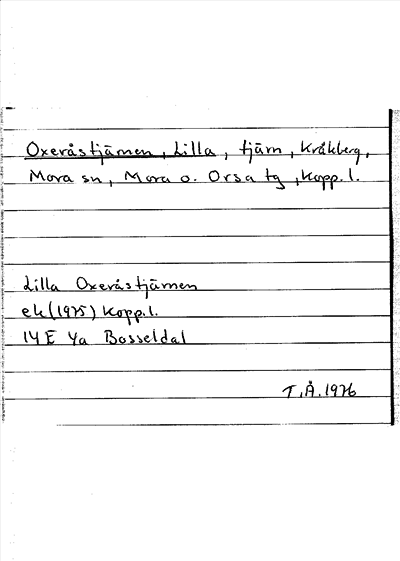 Oxeråstjärnen, Lilla, tjärn, Kråkberg,
Mora sn, Mora o. Orsa tg, Kopp. l.
Lilla Oxeråstjärnen
ek (1975) Kopp. l.
14E 4a Bosseldal
T.Å. 1976